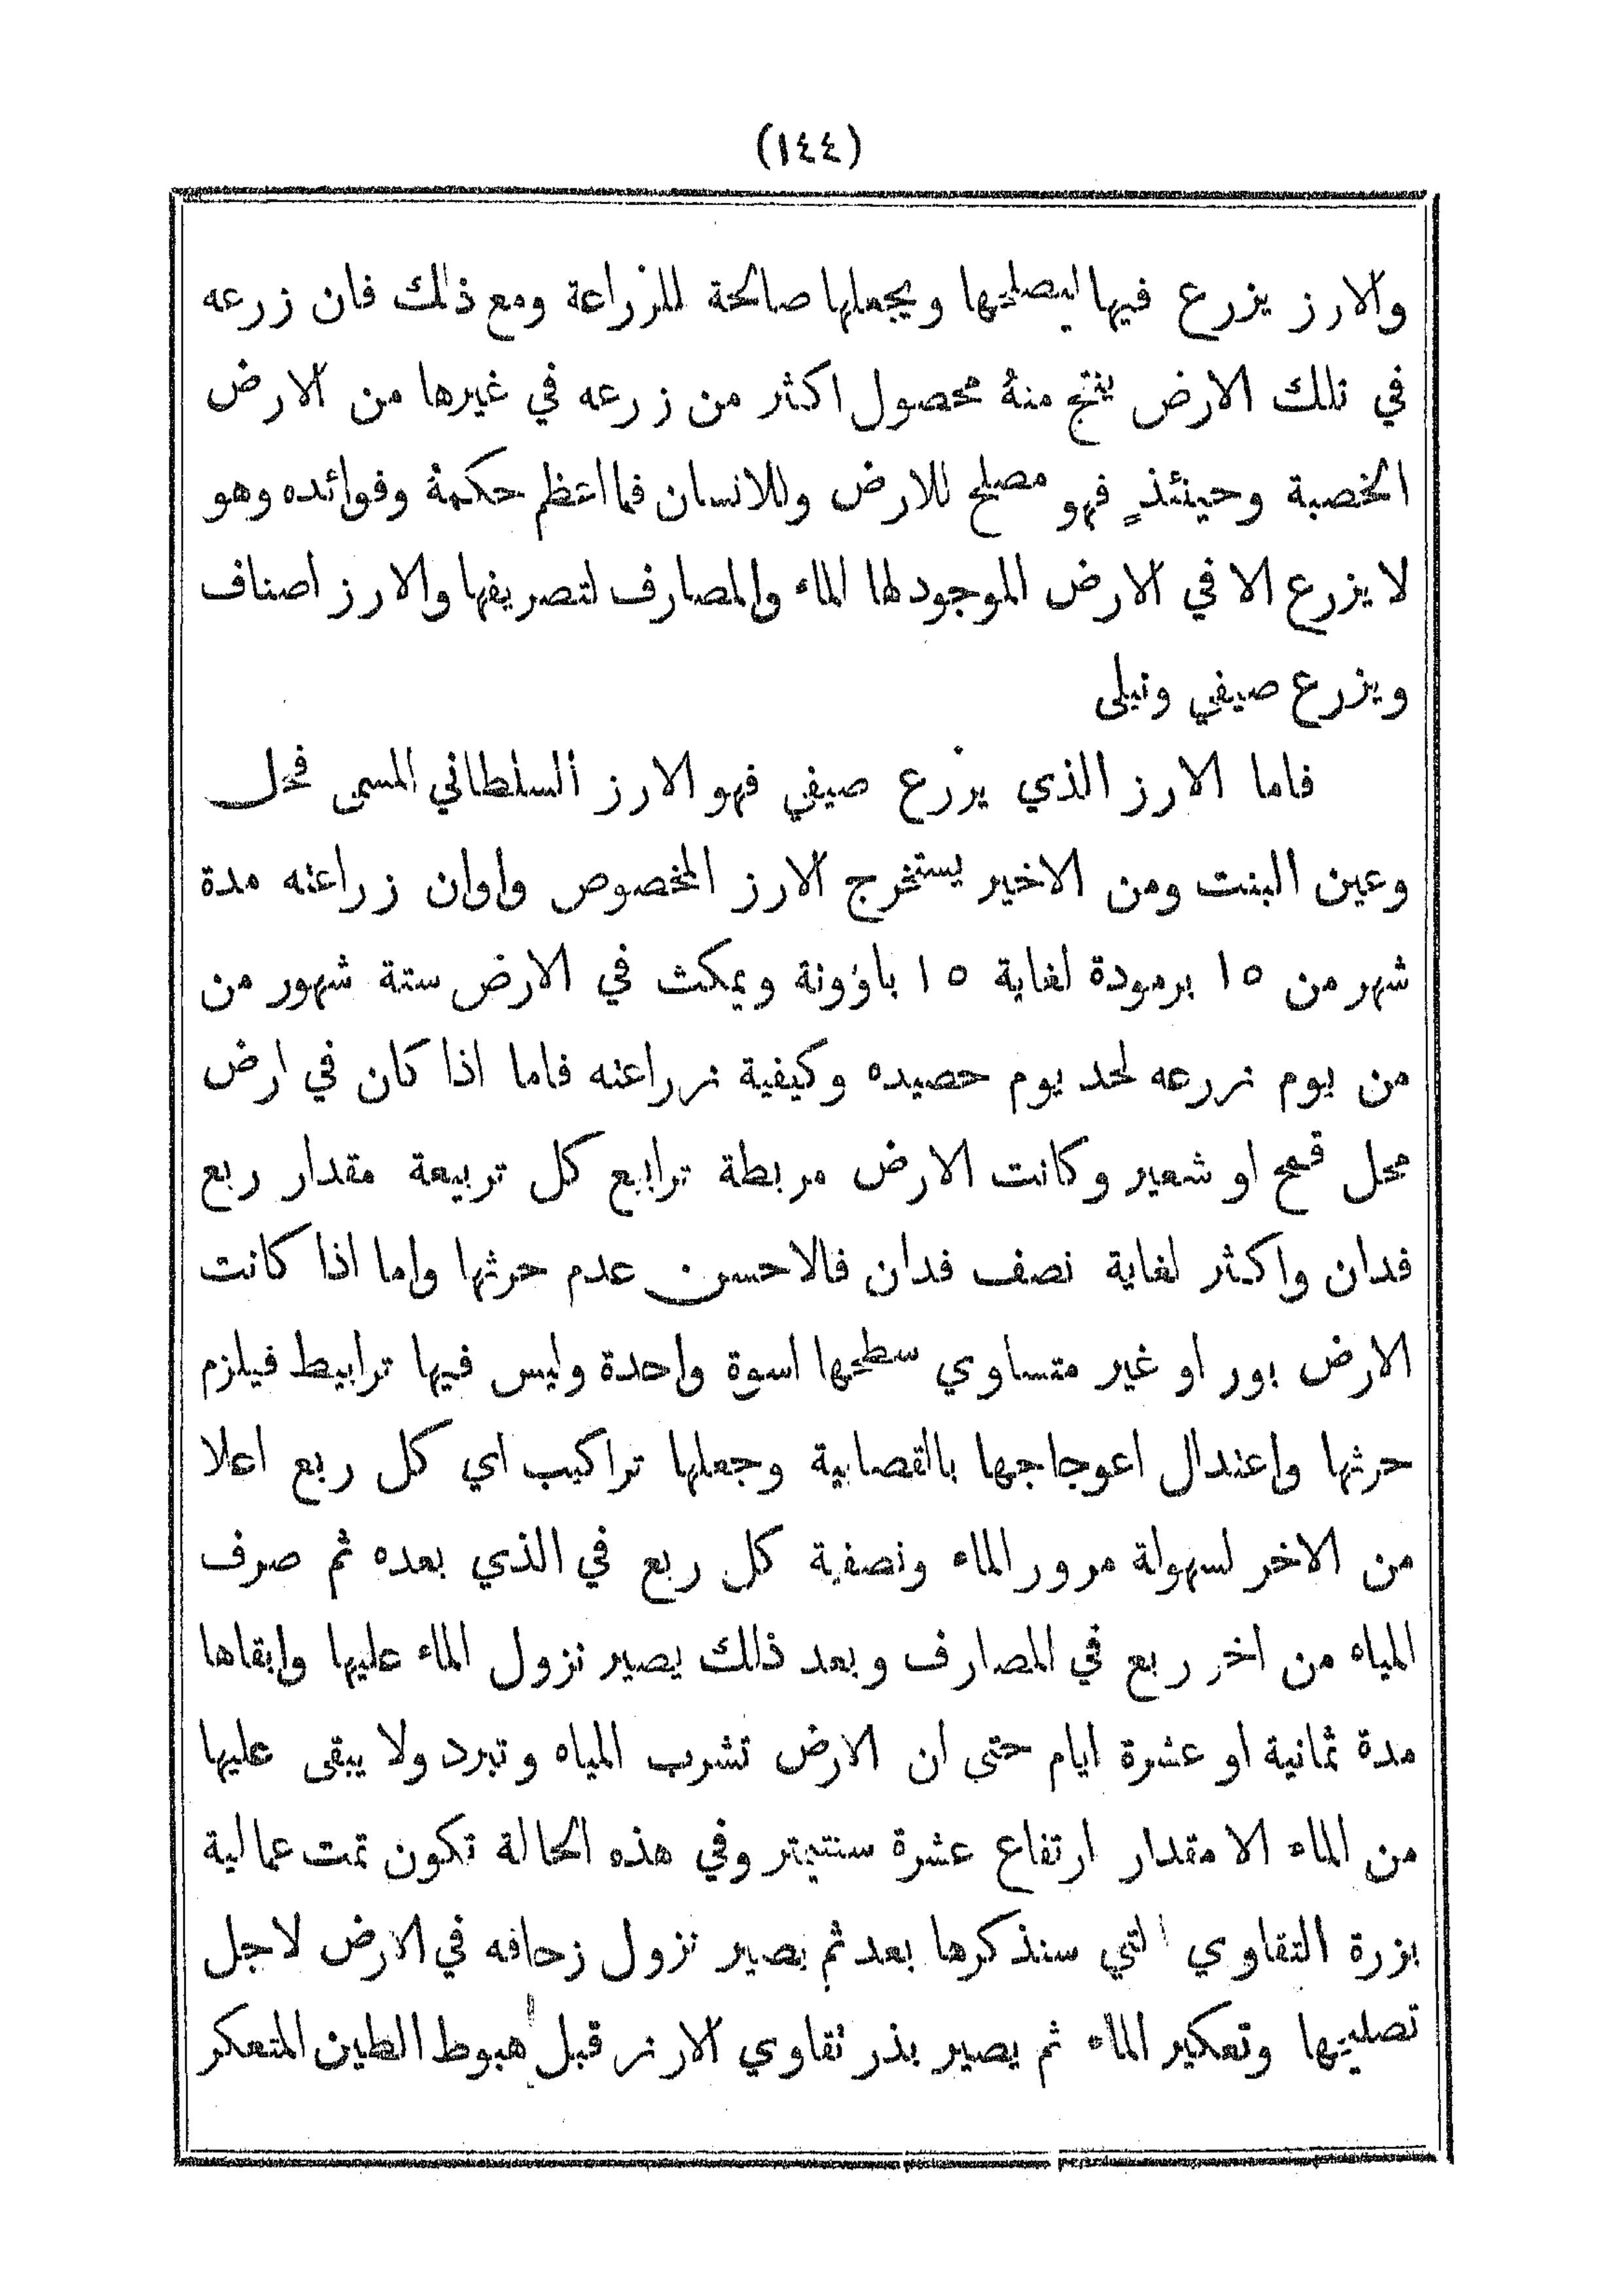 (١٤٤)
والارز يزرع فيها ليصلحها ويجعلها صالحة للزراعة ومع ذلك فان زرعه
في تلك الارض ينتج منهُ محصول اكثر من زرعه في غيرها من الارض
الخصبة وحينئذٍ فهو مصلح للارض وللانسان فما اعظم حكمةً وفوائده وهو
لا يزرع الا في الارض الموجود لها الماء والمصارف لتصريفها والارز اصناف
ويزرع صيفي ونيلى
فاما الارز الذي يزرع صيفي فهو الارز السلطاني المسمى فحل
وعين البنت ومن الاخير يستخرج الارز المخصوص واوان زراعته مدة
شهر من ١٥ برمودة لغاية ١٥ باؤونة ويمكث في الارض ستة شهور من
من يوم زرعه لحد يوم حصيده وكيفية زراعته فاما اذا كان في ارض
محل قمح او شعير وكانت الارض مربطة ترابيع كل تربيعة مقدار ربع
فدان واكثر لغاية نصف فدان فالاحسن عدم حرثها واما اذا كانت
الارض بور او غير متساوي سطحها اسوة واحدة وليس فيها ترابيط فيلزم
حرثها واعتدال اعوجاجها بالقصابية وجعلها تراكيب اي كل ربع اعلا
من الاخر لسهولة مرور الماء وتصفية كل ربع في الذي بعده ثم صرف
المياه من اخر ربع في المصارف وبعد ذلك يصير نزول الماء عليها وابقاها
مدة ثمانية او عشرة ايام حتى ان الارض تشرب المياه وتبرد ولا يبقى عليها
من الماء الا مقدار ارتفاع عشرة سنتيمتر وفي هذه الحالة تكون تمت عمالية
بزرة التقاوي التي سنذكرها بعد ثم يصير نزول زحافه في الارض لاجل
تصليحها وتعكير الماء ثم يصير بذر تقاوي الارز قبل هبوط الطين المتعكر